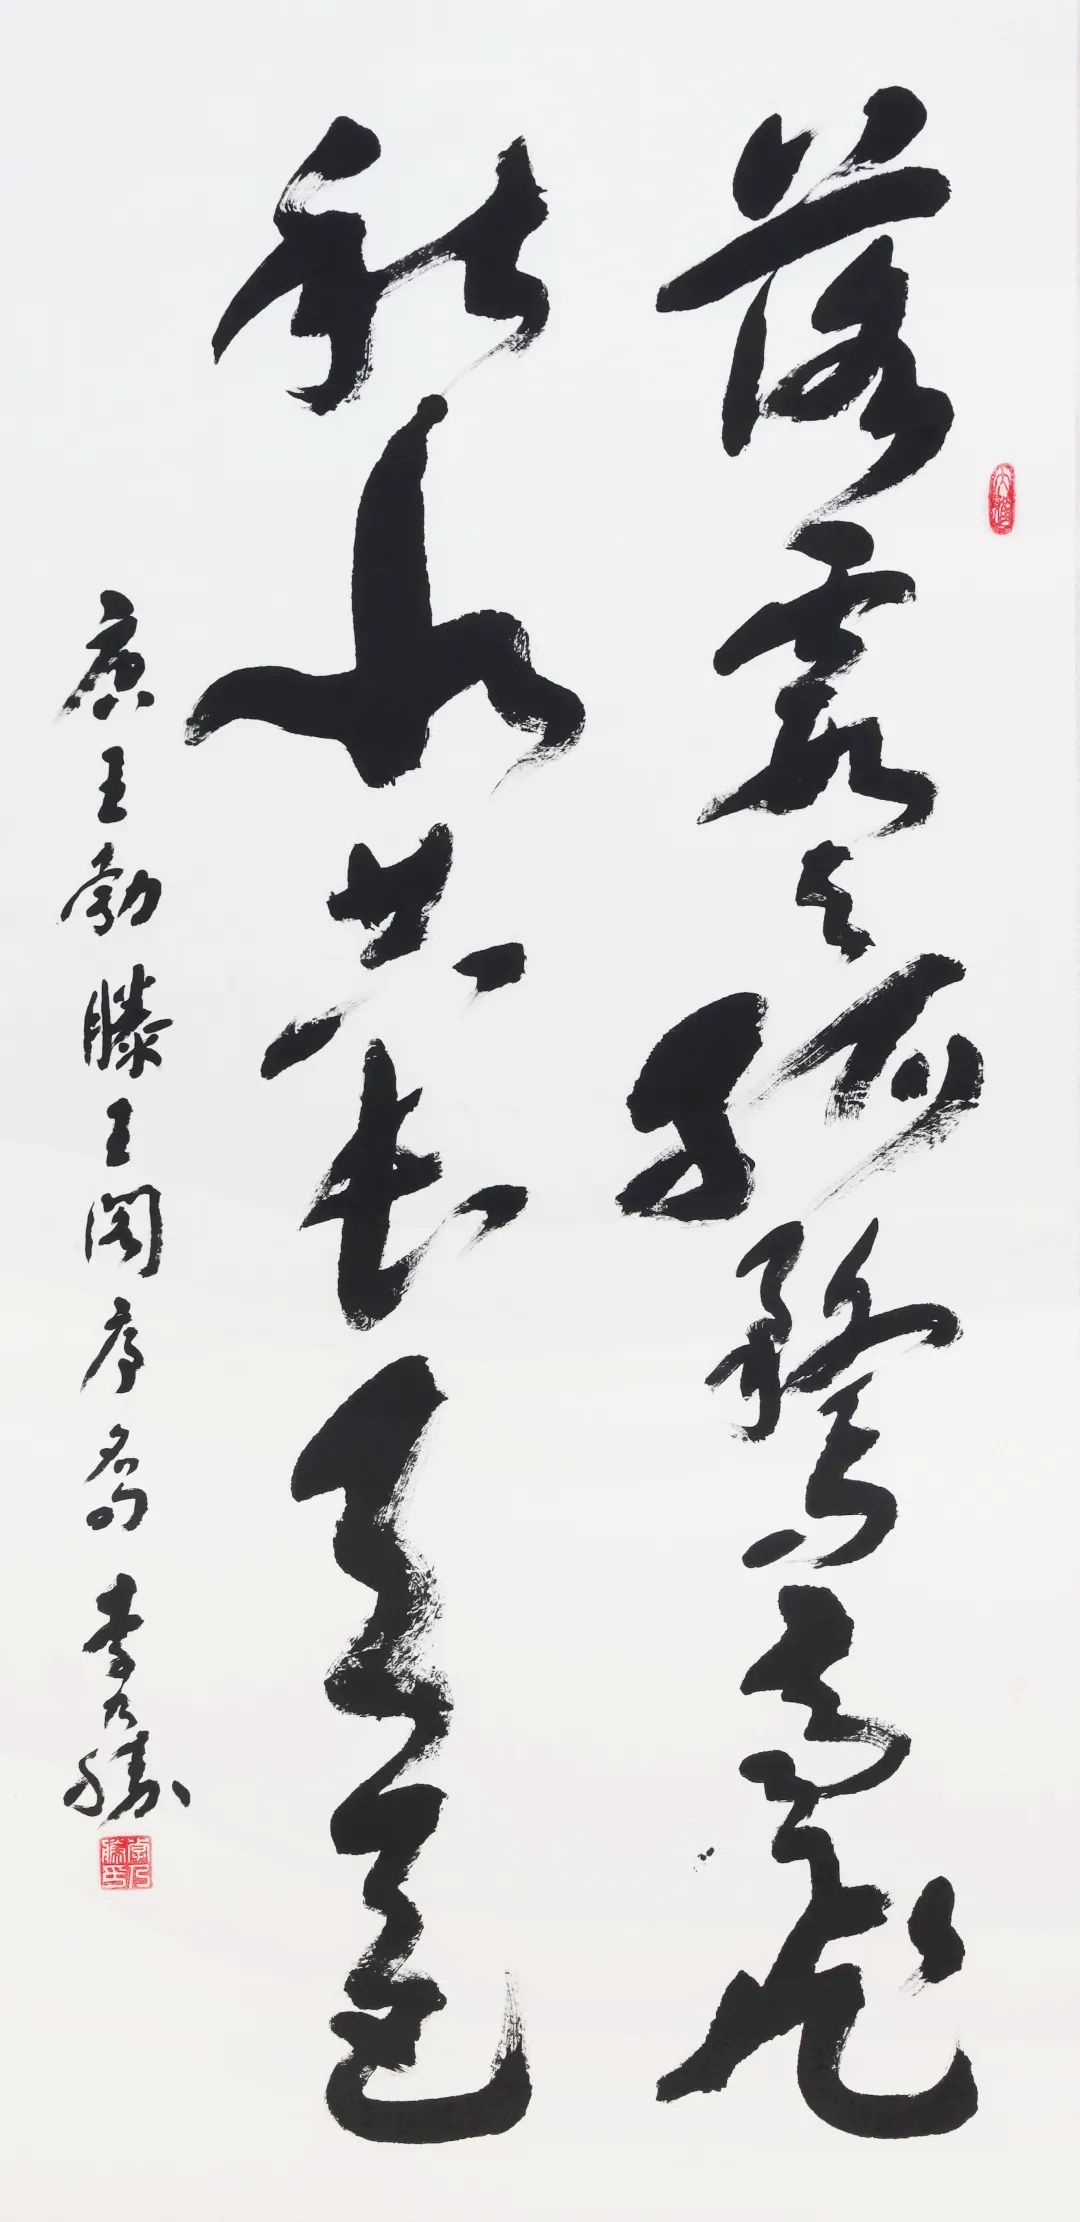 落霞与孤鹜齐飞
秋水共长天一色
唐王勃滕王阁序名句 李乃胜
李乃胜印